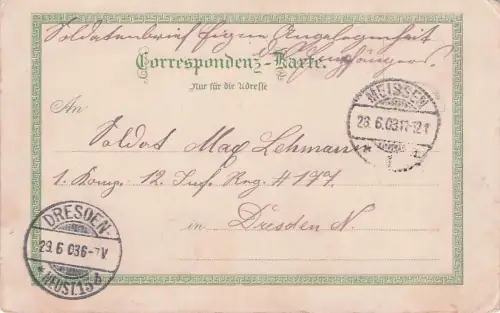 Soldatenbrief Eigene Angelegenheit
d. Empfängers.
Correspondenz-Karte.
Nur für die Adresse
MEISSEN
28.6.03 11-12 V
An
Soldat Max Lehmann
1. Komp. 12. Inf. Reg. # 177
in Dresden N.
DRESDEN-
29.6 03 6-7V
* NEUST. 15 b